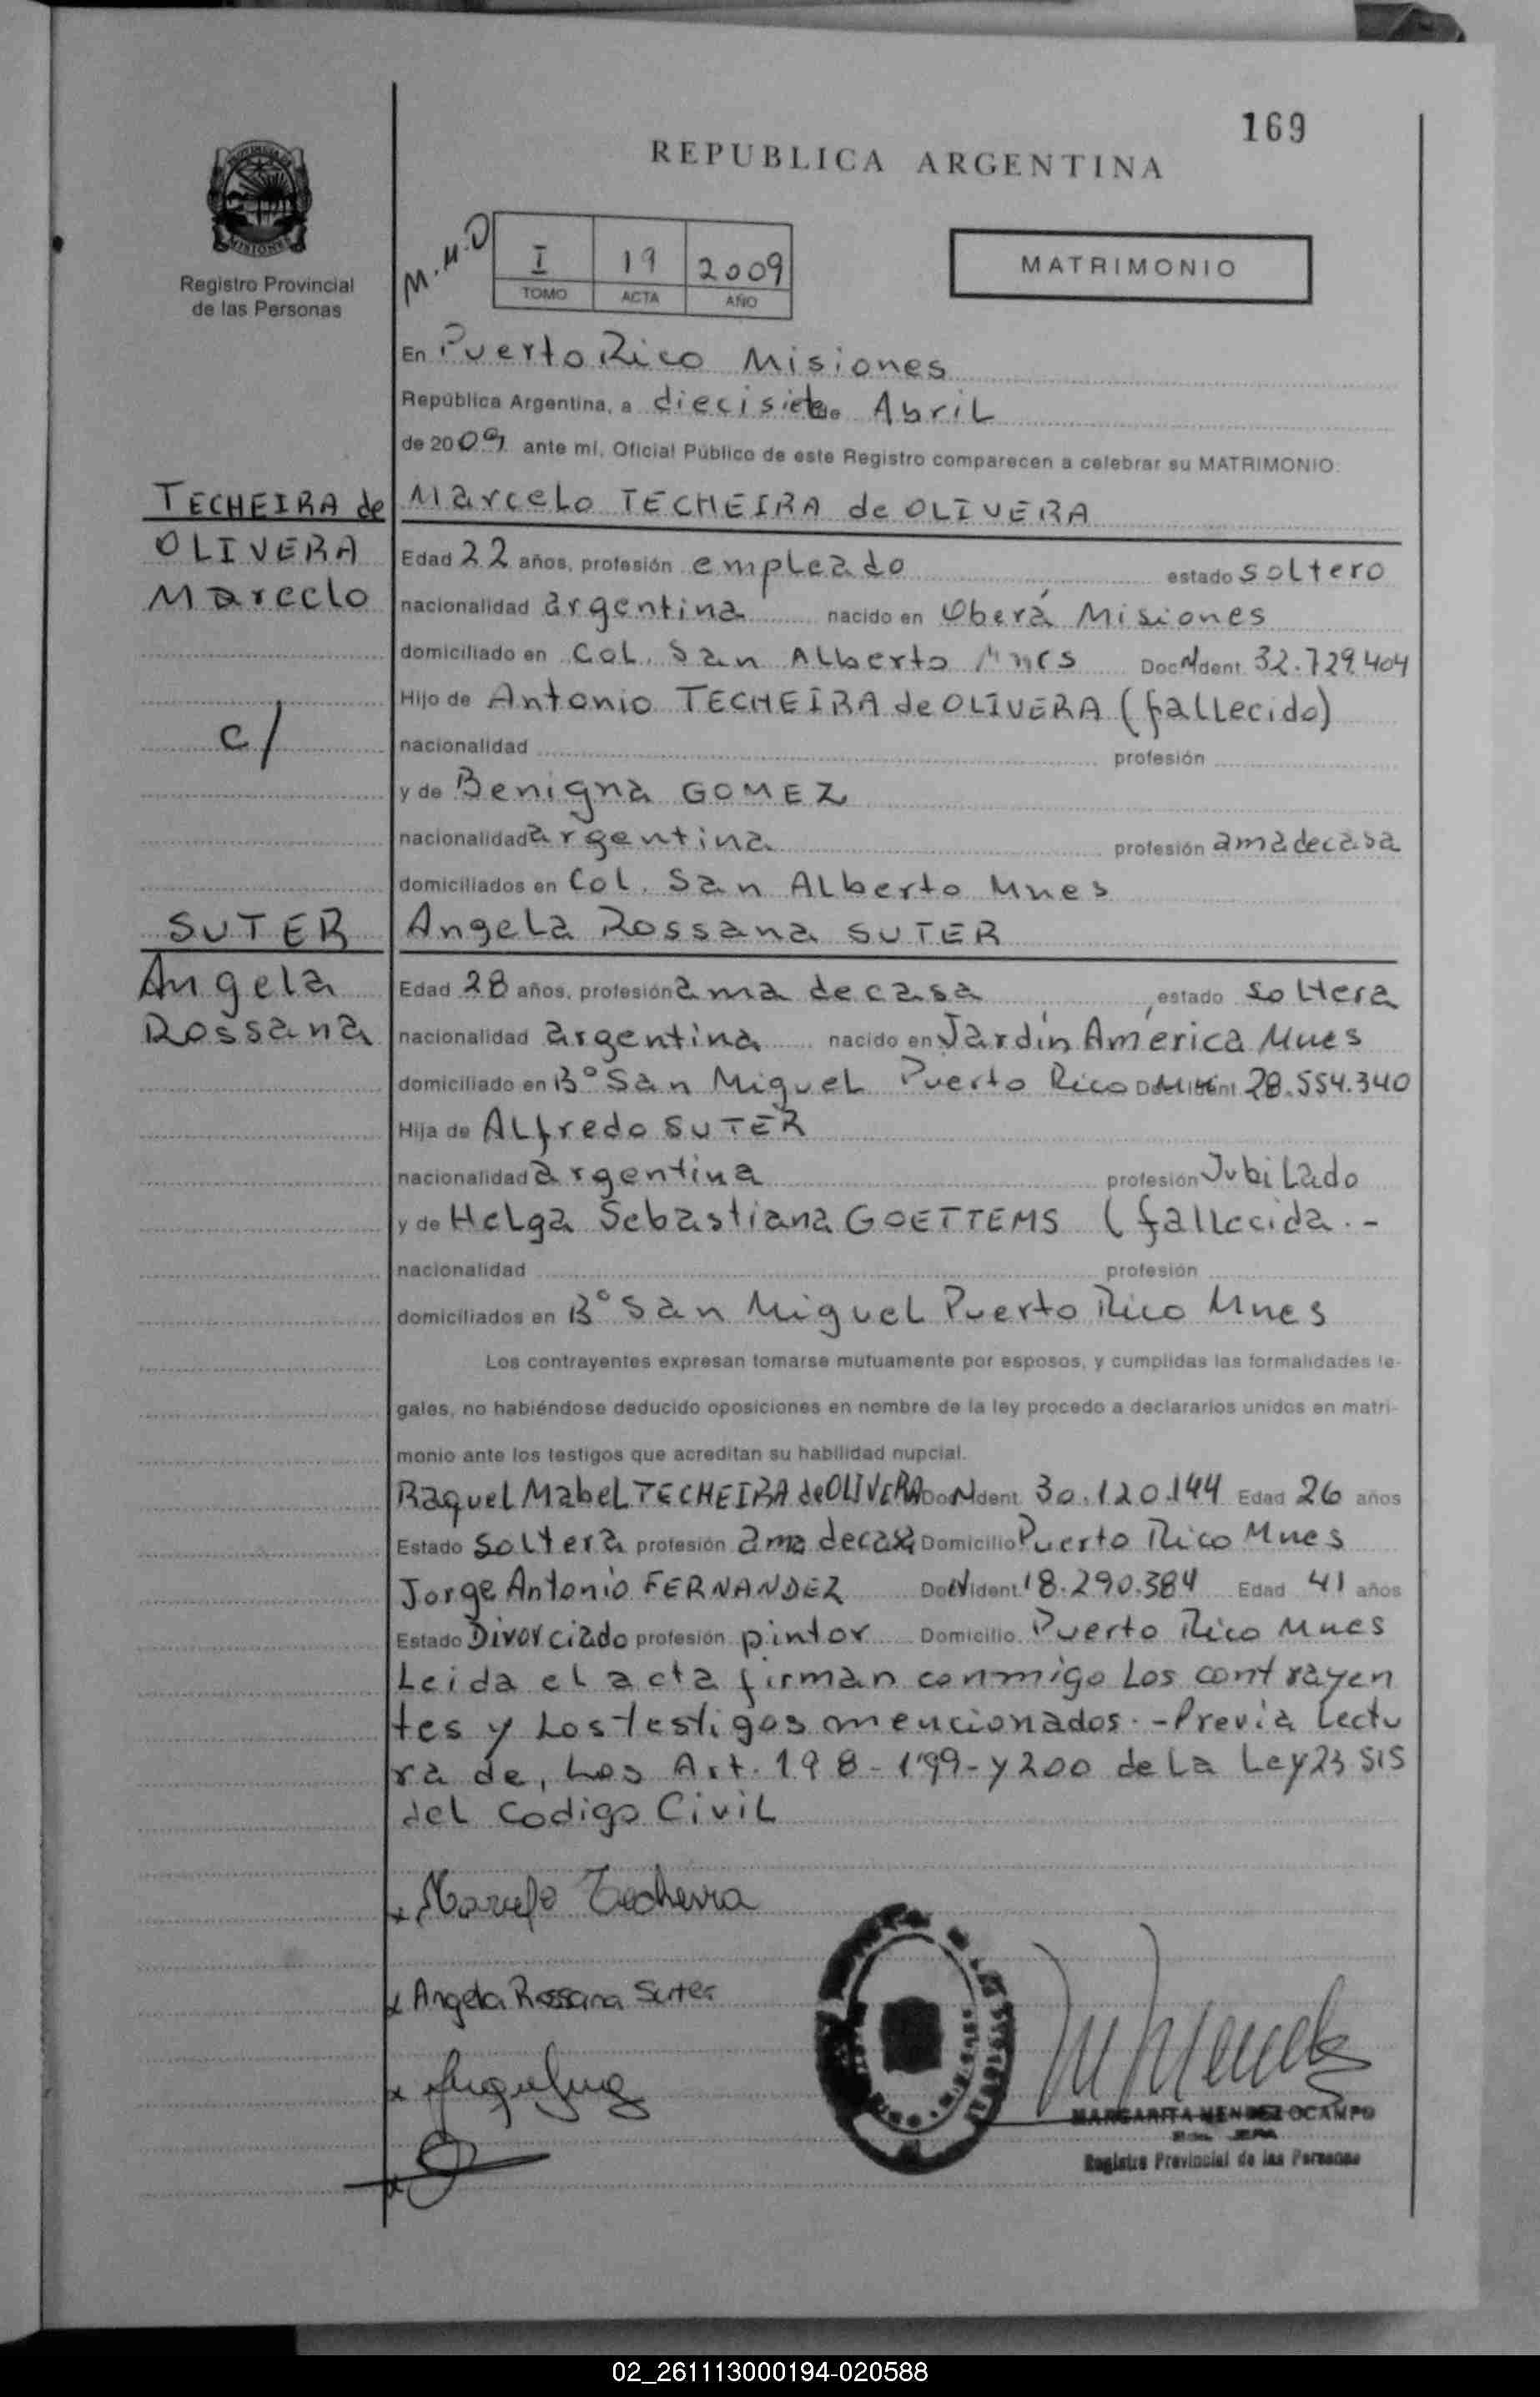 169
REPUBLICA ARGENTINA
PROVINCIA DE
MISIONES
Registro Provincial
de las Personas
M.H.D
I 19 2009
TOMO ACTA AÑO
MATRIMONIO
En Puerto Rico Misiones
República Argentina, a diecisiete de Abril
de 2009 ante mí, Oficial Público de este Registro comparecen a celebrar su MATRIMONIO:
TECHEIRA de
OLIVERA
Marcelo
c/
SUTER
Angela
Rossana
Marcelo TECHEIRA de OLIVERA
Edad 22 años, profesión empleado estado soltero
nacionalidad argentina nacido en Oberá Misiones
domiciliado en Col. San Alberto Mnes Doc N Ident. 32.729.404
Hijo de Antonio TECHEIRA de OLIVERA (fallecido)
nacionalidad profesión
y de Benigna GOMEZ
nacionalidad argentina profesión ama de casa
domiciliados en Col. San Alberto Mnes
Angela Rossana SUTER
Edad 28 años, profesión ama de casa estado soltera
nacionalidad argentina nacido en Jardín América Mnes
domiciliado en B° San Miguel Puerto Rico Doc N Ident 28.554.340
Hija de Alfredo SUTER
nacionalidad argentina profesión Jubilado
y de Helga Sebastiana GOETTEMS (fallecida.-
nacionalidad profesión
domiciliados en B° San Miguel Puerto Rico Mnes
Los contrayentes expresan tomarse mutuamente por esposos, y cumplidas las formalidades le-
gales, no habiéndose deducido oposiciones en nombre de la ley procedo a declararlos unidos en matri-
monio ante los testigos que acreditan su habilidad nupcial.
Raquel Mabel TECHEIRA de OLIVERA Doc N Ident. 30.120.144 Edad 26 años
Estado soltera profesión ama de casa Domicilio Puerto Rico Mnes
Jorge Antonio FERNANDEZ Doc N Ident. 18.290.384 Edad 41 años
Estado Divorciado profesión pintor Domicilio Puerto Rico Mnes
Leida el acta firman conmigo los contrayen
tes y los testigos mencionados.-Previa lectu
ra de, los Art. 198-199-y 200 de la Ley 23 515
del Codigo Civil
x Marcelo Techeira
x Angela Rossana Suter
x
x
MARGARITA MENDEZ OCAMPO
Registro Provincial de las Personas
02_261113000194-020588